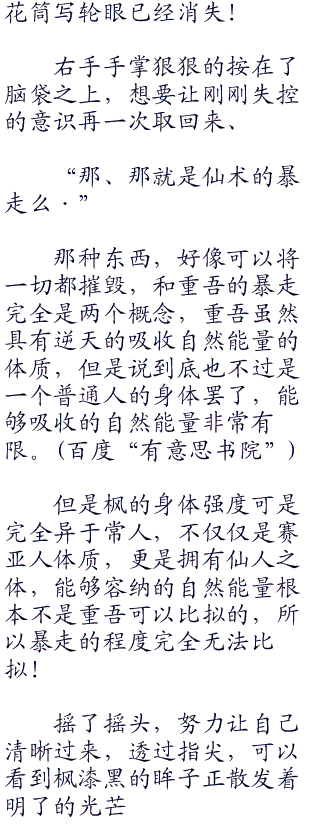 花筒写轮眼已经消失！
右手手掌狠狠的按在了
脑袋之上，想要让刚刚失控
的意识再一次取回来、
“那、那就是仙术的暴
走么·”
那种东西，好像可以将
一切都摧毁，和重吾的暴走
完全是两个概念，重吾虽然
具有逆天的吸收自然能量的
体质，但是说到底也不过是
一个普通人的身体罢了，能
够吸收的自然能量非常有
限。(百度“有意思书院”)
但是枫的身体强度可是
完全异于常人，不仅仅是赛
亚人体质，更是拥有仙人之
体，能够容纳的自然能量根
本不是重吾可以比拟的，所
以暴走的程度完全无法比
拟！
摇了摇头，努力让自己
清晰过来，透过指尖，可以
看到枫漆黑的眸子正散发着
明了的光芒